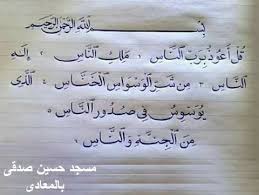 بِسْمِ اللَّهِ الرَّحْمَنِ الرَّحِيمِ
قُلْ أَعُوذُ بِرَبِّ النَّاسِ ١ مَلِكِ النَّاسِ ٢ إِلَهِ
النَّاسِ ٣ مِنْ شَرِّ الْوَسْوَاسِ الْخَنَّاسِ ٤ الَّذِي
يُوَسْوِسُ فِي صُدُورِ النَّاسِ ٥
مِنَ الْجِنَّةِ وَالنَّاسِ ٦
مسجد حسين صدقى
بالمعادى